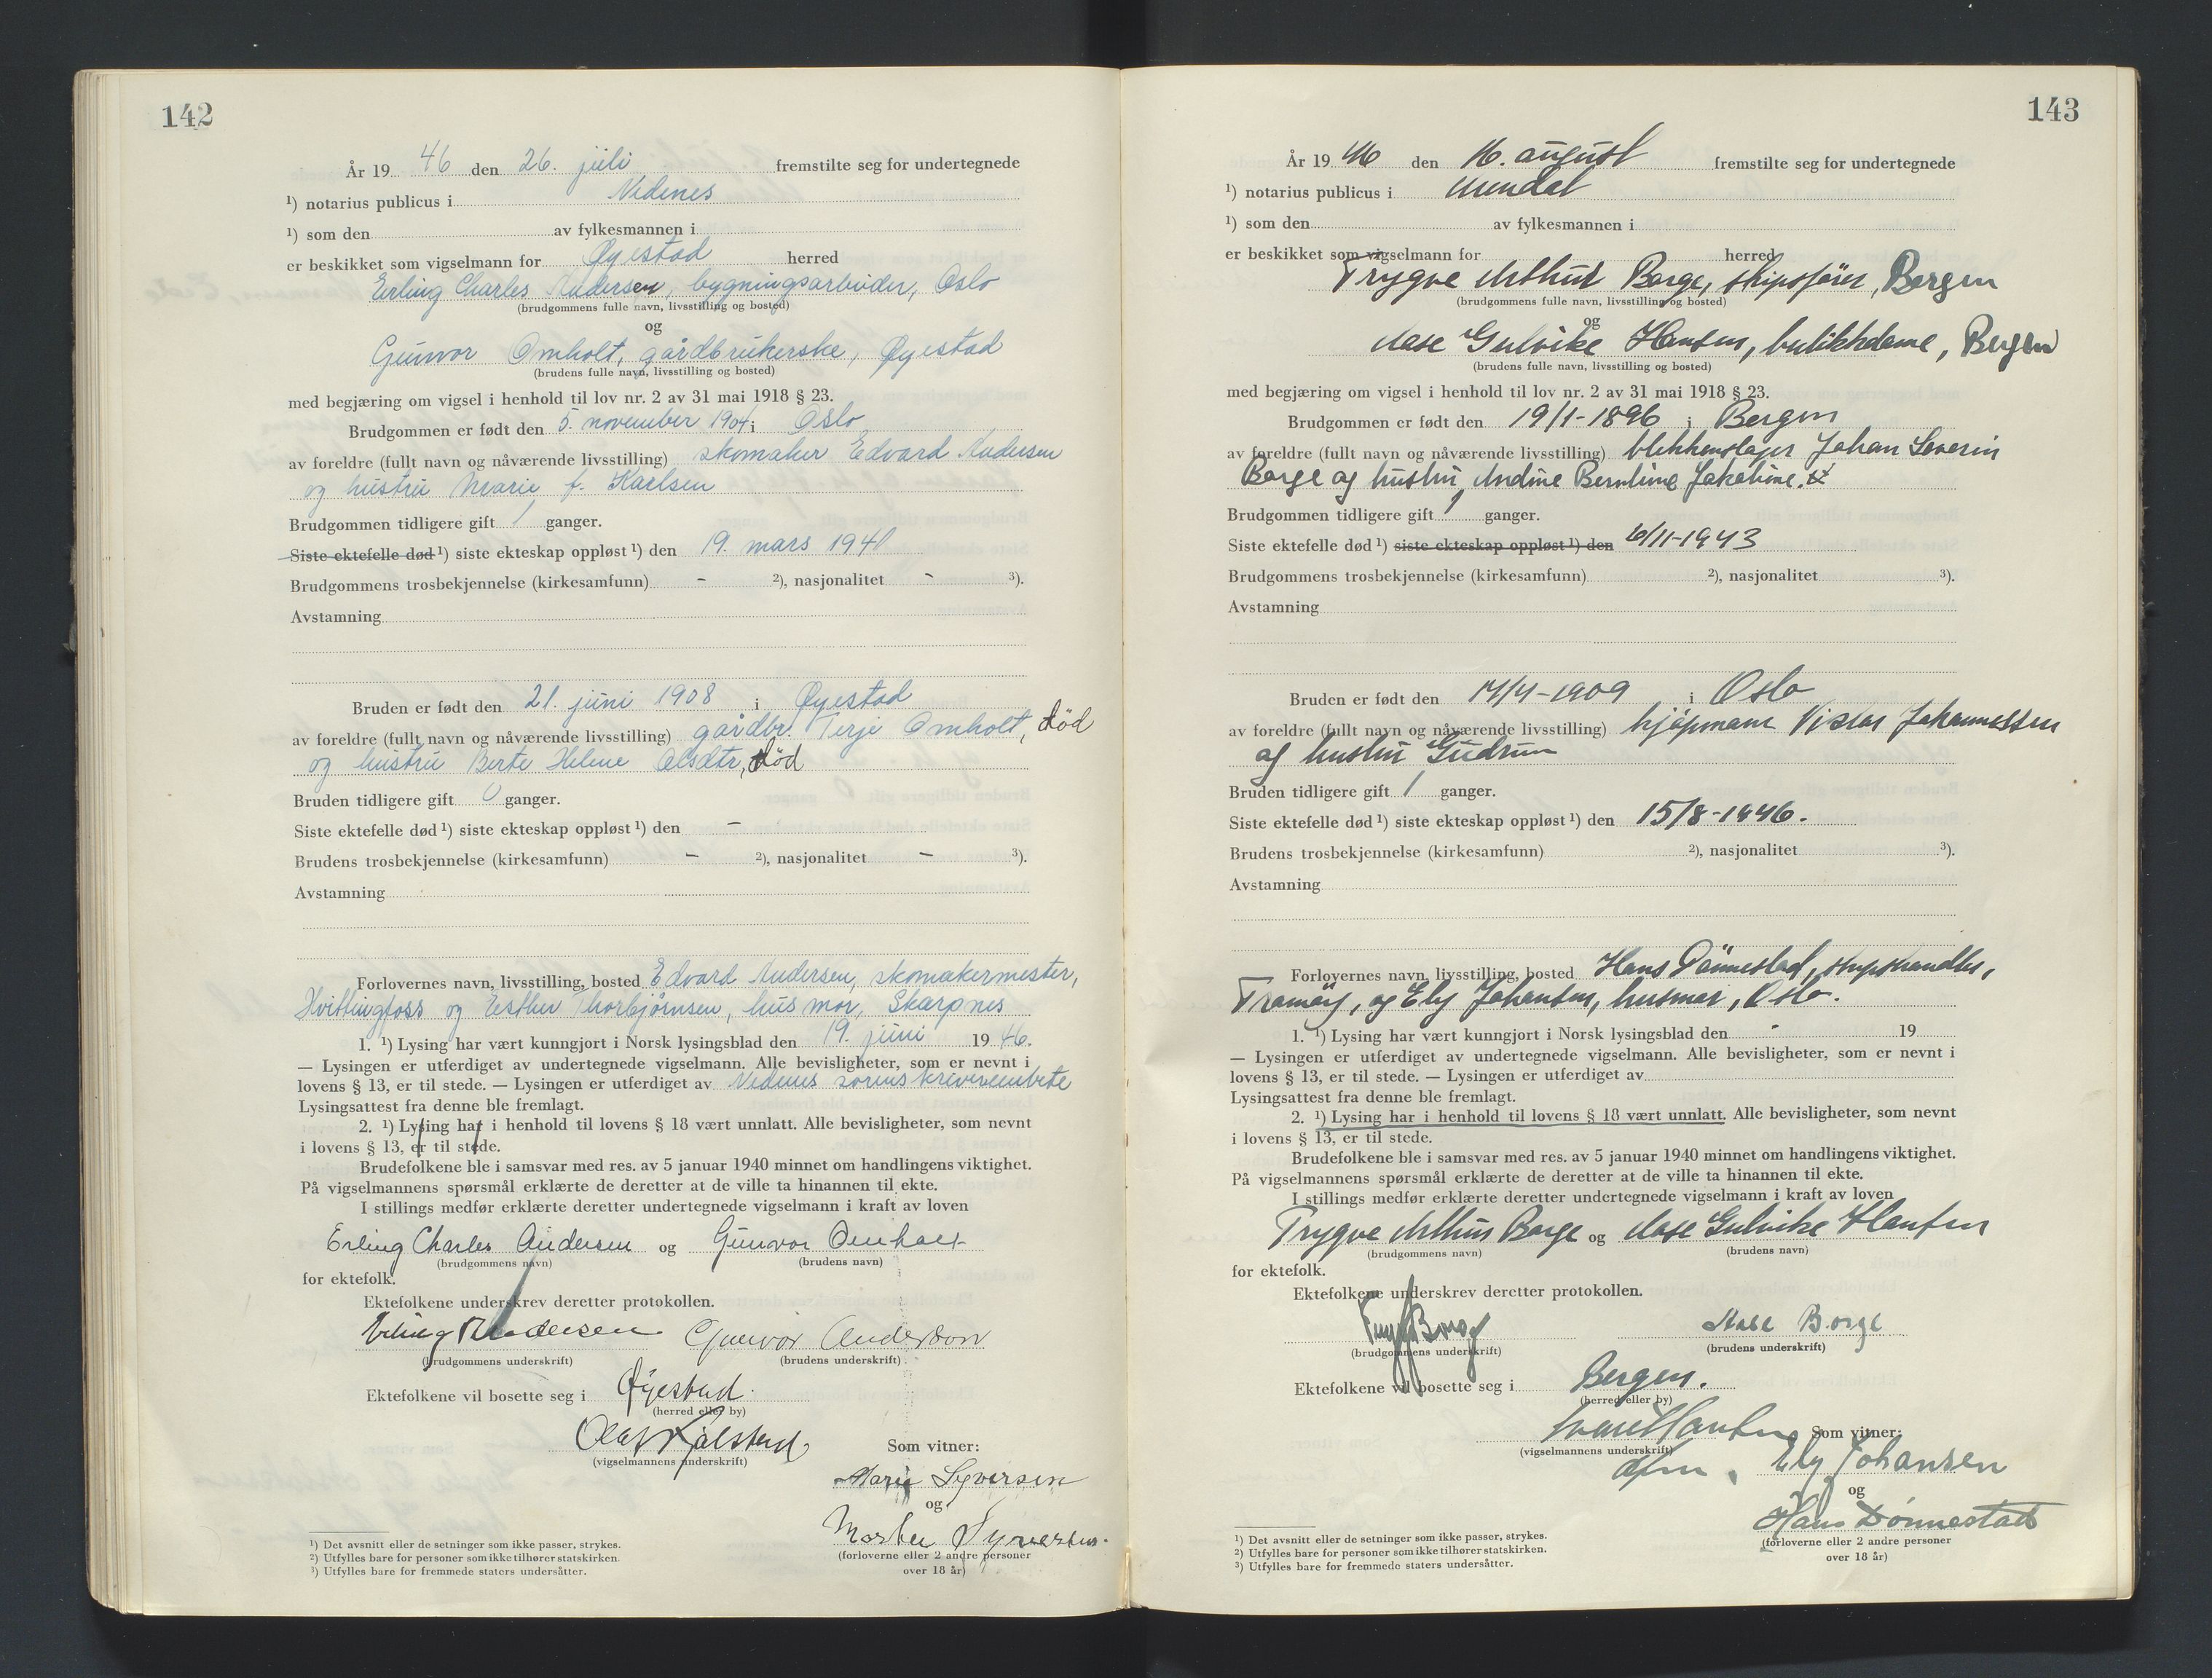 142
År 19 46 den 26. juli fremstilte seg for undertegnede
¹) notarius publicus i Nedenes
¹) som den av fylkesmannen i
er beskikket som vigselmann for Øyestad herred
Erling Charles Andersen, bygningsarbeider, Oslo
(brudgommens fulle navn, livsstilling og bosted)
og
Gunvor Omholt, gårdbrukerske, Øyestad
(brudens fulle navn, livsstilling og bosted)
med begjæring om vigsel i henhold til lov nr. 2 av 31 mai 1918 § 23.
Brudgommen er født den 5. november 1904 i Oslo
av foreldre (fullt navn og nåværende livsstilling) skomaker Edvard Andersen
og hustru Marie f. Karlsen
Brudgommen tidligere gift 1 ganger.
Siste ektefelle død ¹) siste ekteskap oppløst ¹) den 19. mars 1941
Brudgommens trosbekjennelse (kirkesamfunn) - ²), nasjonalitet - ³).
Avstamning
Bruden er født den 21. juni 1908 i Øyestad
av foreldre (fullt navn og nåværende livsstilling) gårdbr. Terje Omholt, død
og hustru Berte Helene Olsdtr, død
Bruden tidligere gift 0 ganger.
Siste ektefelle død ¹) siste ekteskap oppløst ¹) den -
Brudens trosbekjennelse (kirkesamfunn) - ²), nasjonalitet - ³).
Avstamning
Forlovernes navn, livsstilling, bosted Edvard Andersen, skomakermester,
Hvittingfoss og Esther Thorbjørnsen, husmor, Skarpnes
1. ¹) Lysing har vært kunngjort i Norsk lysingsblad den 19. juni 19 46.
— Lysingen er utferdiget av undertegnede vigselmann. Alle bevisligheter, som er nevnt i
lovens § 13, er til stede. — Lysingen er utferdiget av Nedenes sorenskriverembete
Lysingsattest fra denne ble fremlagt.
2. ¹) Lysing har i henhold til lovens § 18 vært unnlatt. Alle bevisligheter, som nevnt
i lovens § 13, er til stede.
Brudefolkene ble i samsvar med res. av 5 januar 1940 minnet om handlingens viktighet.
På vigselmannens spørsmål erklærte de deretter at de ville ta hinannen til ekte.
I stillings medfør erklærte deretter undertegnede vigselmann i kraft av loven
Erling Charles Andersen og Gunvor Omholt
(brudgommens navn) (brudens navn)
for ektefolk.
Ektefolkene underskrev deretter protokollen.
Erling Andersen Gunvor Anderson
(brudgommens underskrift) (brudens underskrift)
Ektefolkene vil bosette seg i Øyestad.
(herred eller by)
Olaf
(vigselmannens underskrift)
Som vitner:
Marie Syversen
og
Morten Syvertsen
(forloverne eller 2 andre personer
over 18 år)
¹) Det avsnitt eller de setninger som ikke passer, strykes.
²) Utfylles bare for personer som ikke tilhører statskirken.
³) Utfylles bare for fremmede staters undersåtter.
143
År 19 46 den 16. august fremstilte seg for undertegnede
¹) notarius publicus i Arendal
¹) som den av fylkesmannen i
er beskikket som vigselmann for herred
Trygve Arthur Borge, skipsfører, Bergen
(brudgommens fulle navn, livsstilling og bosted)
og
Aase Gulvike Hansen, butikkdame, Bergen
(brudens fulle navn, livsstilling og bosted)
med begjæring om vigsel i henhold til lov nr. 2 av 31 mai 1918 § 23.
Brudgommen er født den 19/1-1896 i Bergen
av foreldre (fullt navn og nåværende livsstilling) blikkenslager Johan Severin
Borge og hustru Andine Berntine Jakobine.
Brudgommen tidligere gift 1 ganger.
Siste ektefelle død ¹) siste ekteskap oppløst ¹) den 6/11-1943
Brudgommens trosbekjennelse (kirkesamfunn) ²), nasjonalitet ³).
Avstamning
Bruden er født den 14/4-1909 i Oslo
av foreldre (fullt navn og nåværende livsstilling) kjøpmann Victor Johannessen
og hustru Gudrun
Bruden tidligere gift 1 ganger.
Siste ektefelle død ¹) siste ekteskap oppløst ¹) den 15/8-1946.
Brudens trosbekjennelse (kirkesamfunn) ²), nasjonalitet ³).
Avstamning
Forlovernes navn, livsstilling, bosted Hans Dønnestad, skipshandler,
Tromøy, og Ely Johansen, husmor, Oslo.
1. ¹) Lysing har vært kunngjort i Norsk lysingsblad den - 19
— Lysingen er utferdiget av undertegnede vigselmann. Alle bevisligheter, som er nevnt i
lovens § 13, er til stede. — Lysingen er utferdiget av
Lysingsattest fra denne ble fremlagt.
2. ¹) Lysing har i henhold til lovens § 18 vært unnlatt. Alle bevisligheter, som nevnt
i lovens § 13, er til stede.
Brudefolkene ble i samsvar med res. av 5 januar 1940 minnet om handlingens viktighet.
På vigselmannens spørsmål erklærte de deretter at de ville ta hinannen til ekte.
I stillings medfør erklærte deretter undertegnede vigselmann i kraft av loven
Trygve Arthur Borge og Aase Gulvike Hansen
(brudgommens navn) (brudens navn)
for ektefolk.
Ektefolkene underskrev deretter protokollen.
Borge Aase Borge
(brudgommens underskrift) (brudens underskrift)
Ektefolkene vil bosette seg i Bergen.
(herred eller by)
(vigselmannens underskrift)
Som vitner:
Ely Johansen
og
Hans Dønnestad
(forloverne eller 2 andre personer
over 18 år)
¹) Det avsnitt eller de setninger som ikke passer, strykes.
²) Utfylles bare for personer som ikke tilhører statskirken.
³) Utfylles bare for fremmede staters undersåtter.